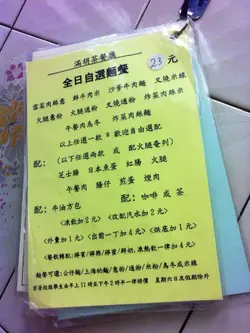 滿湖茶餐廳
全日自選麵餐 23元
雪菜肉絲意 鮮牛肉米 沙爹牛肉麵 叉燒米線
火腿意粉 火腿通粉 叉燒通粉 炸菜肉絲米
午餐肉烏冬 炸菜肉絲麵
以上任選一款 歡迎自由選配
配: (以下任選兩款 或 配火腿奄列)
芝士腸 日本魚蛋 紅腸 火腿
午餐肉 腸仔 煎蛋 燈肉
配: 牛油方包 配: 咖啡 或 茶
<凍飲加2元> <改配汽水加2元>
<外賣加1元> <出前一丁加4元> <烘底加1元>
麵餐可選:公仔麵/上海幼麵/意粉/通粉/米粉/烏冬或米線